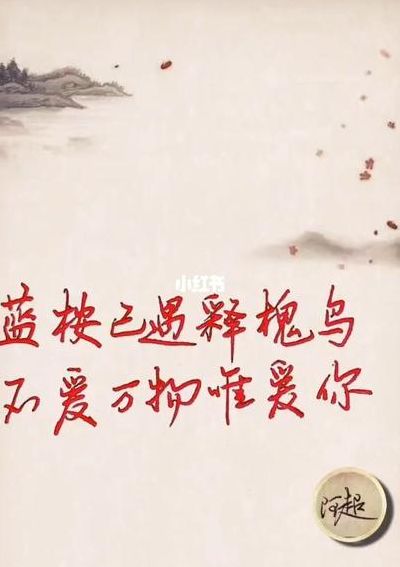 小红书
蓝桉已遇释槐鸟
不爱万物唯爱你
阿超